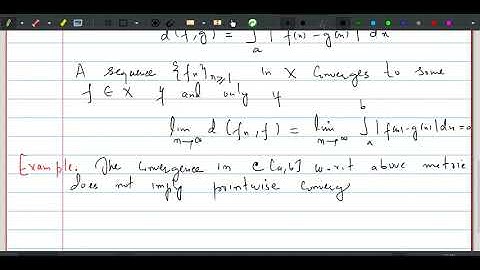 d(f,g) = ∫ₐ | f(x) - g(x) | dx
A sequence {fₙ}ₙ≥₁ in X converges to some
f ∈ X if and only if
lim n→∞ d(fₙ,f) = lim n→∞ ∫ₐᵇ | f(x) - g(x) | dx = 0
Example. The convergence in C[a,b] w.r.t above metric
does not imply pointwise converg